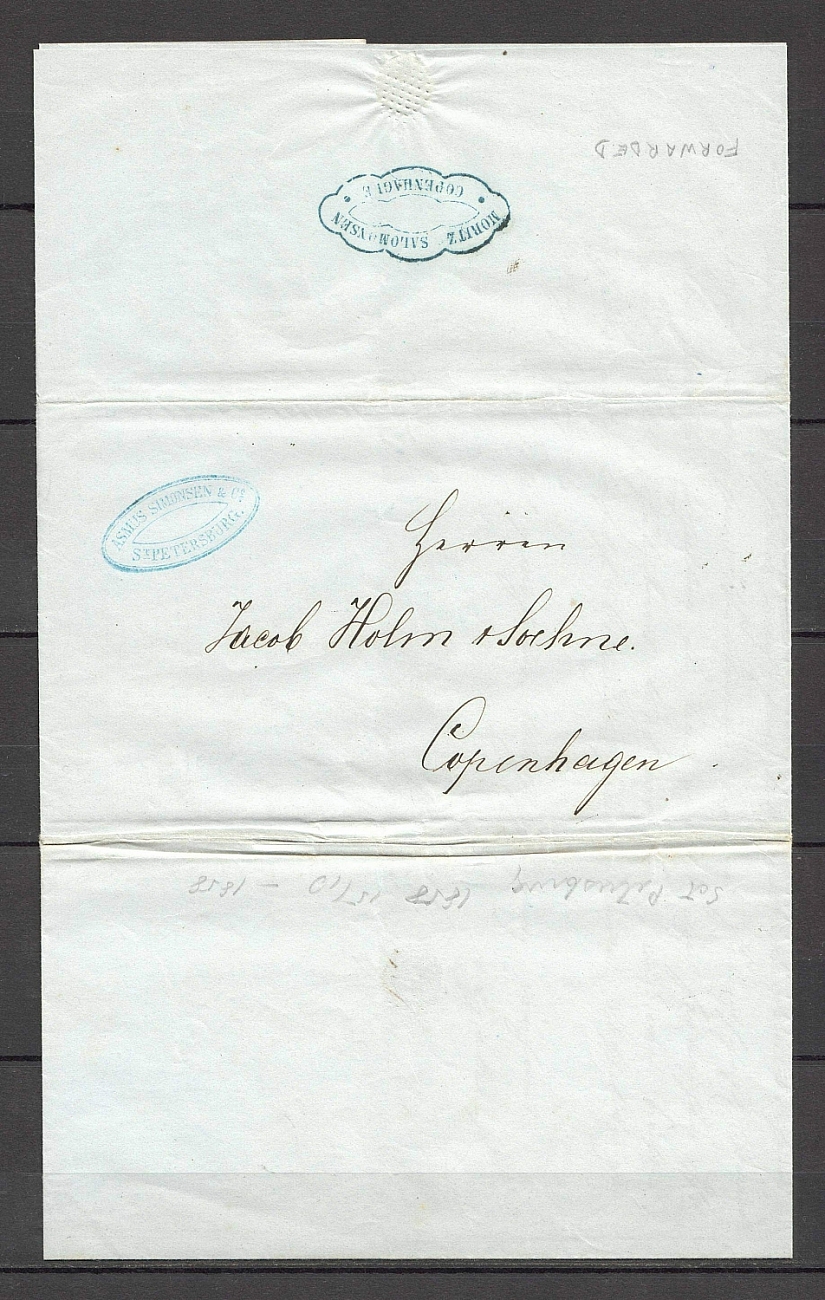 FORWARDED
MORITZ SALOMONSEN
COPENHAGUE
ASMUS SIMONSEN & Cº
Sᵀ PETERSBURG.
Herren
Jacob Holm & Soehne.
Copenhagen
Sct Petersburg 1858 15/10 - 1858